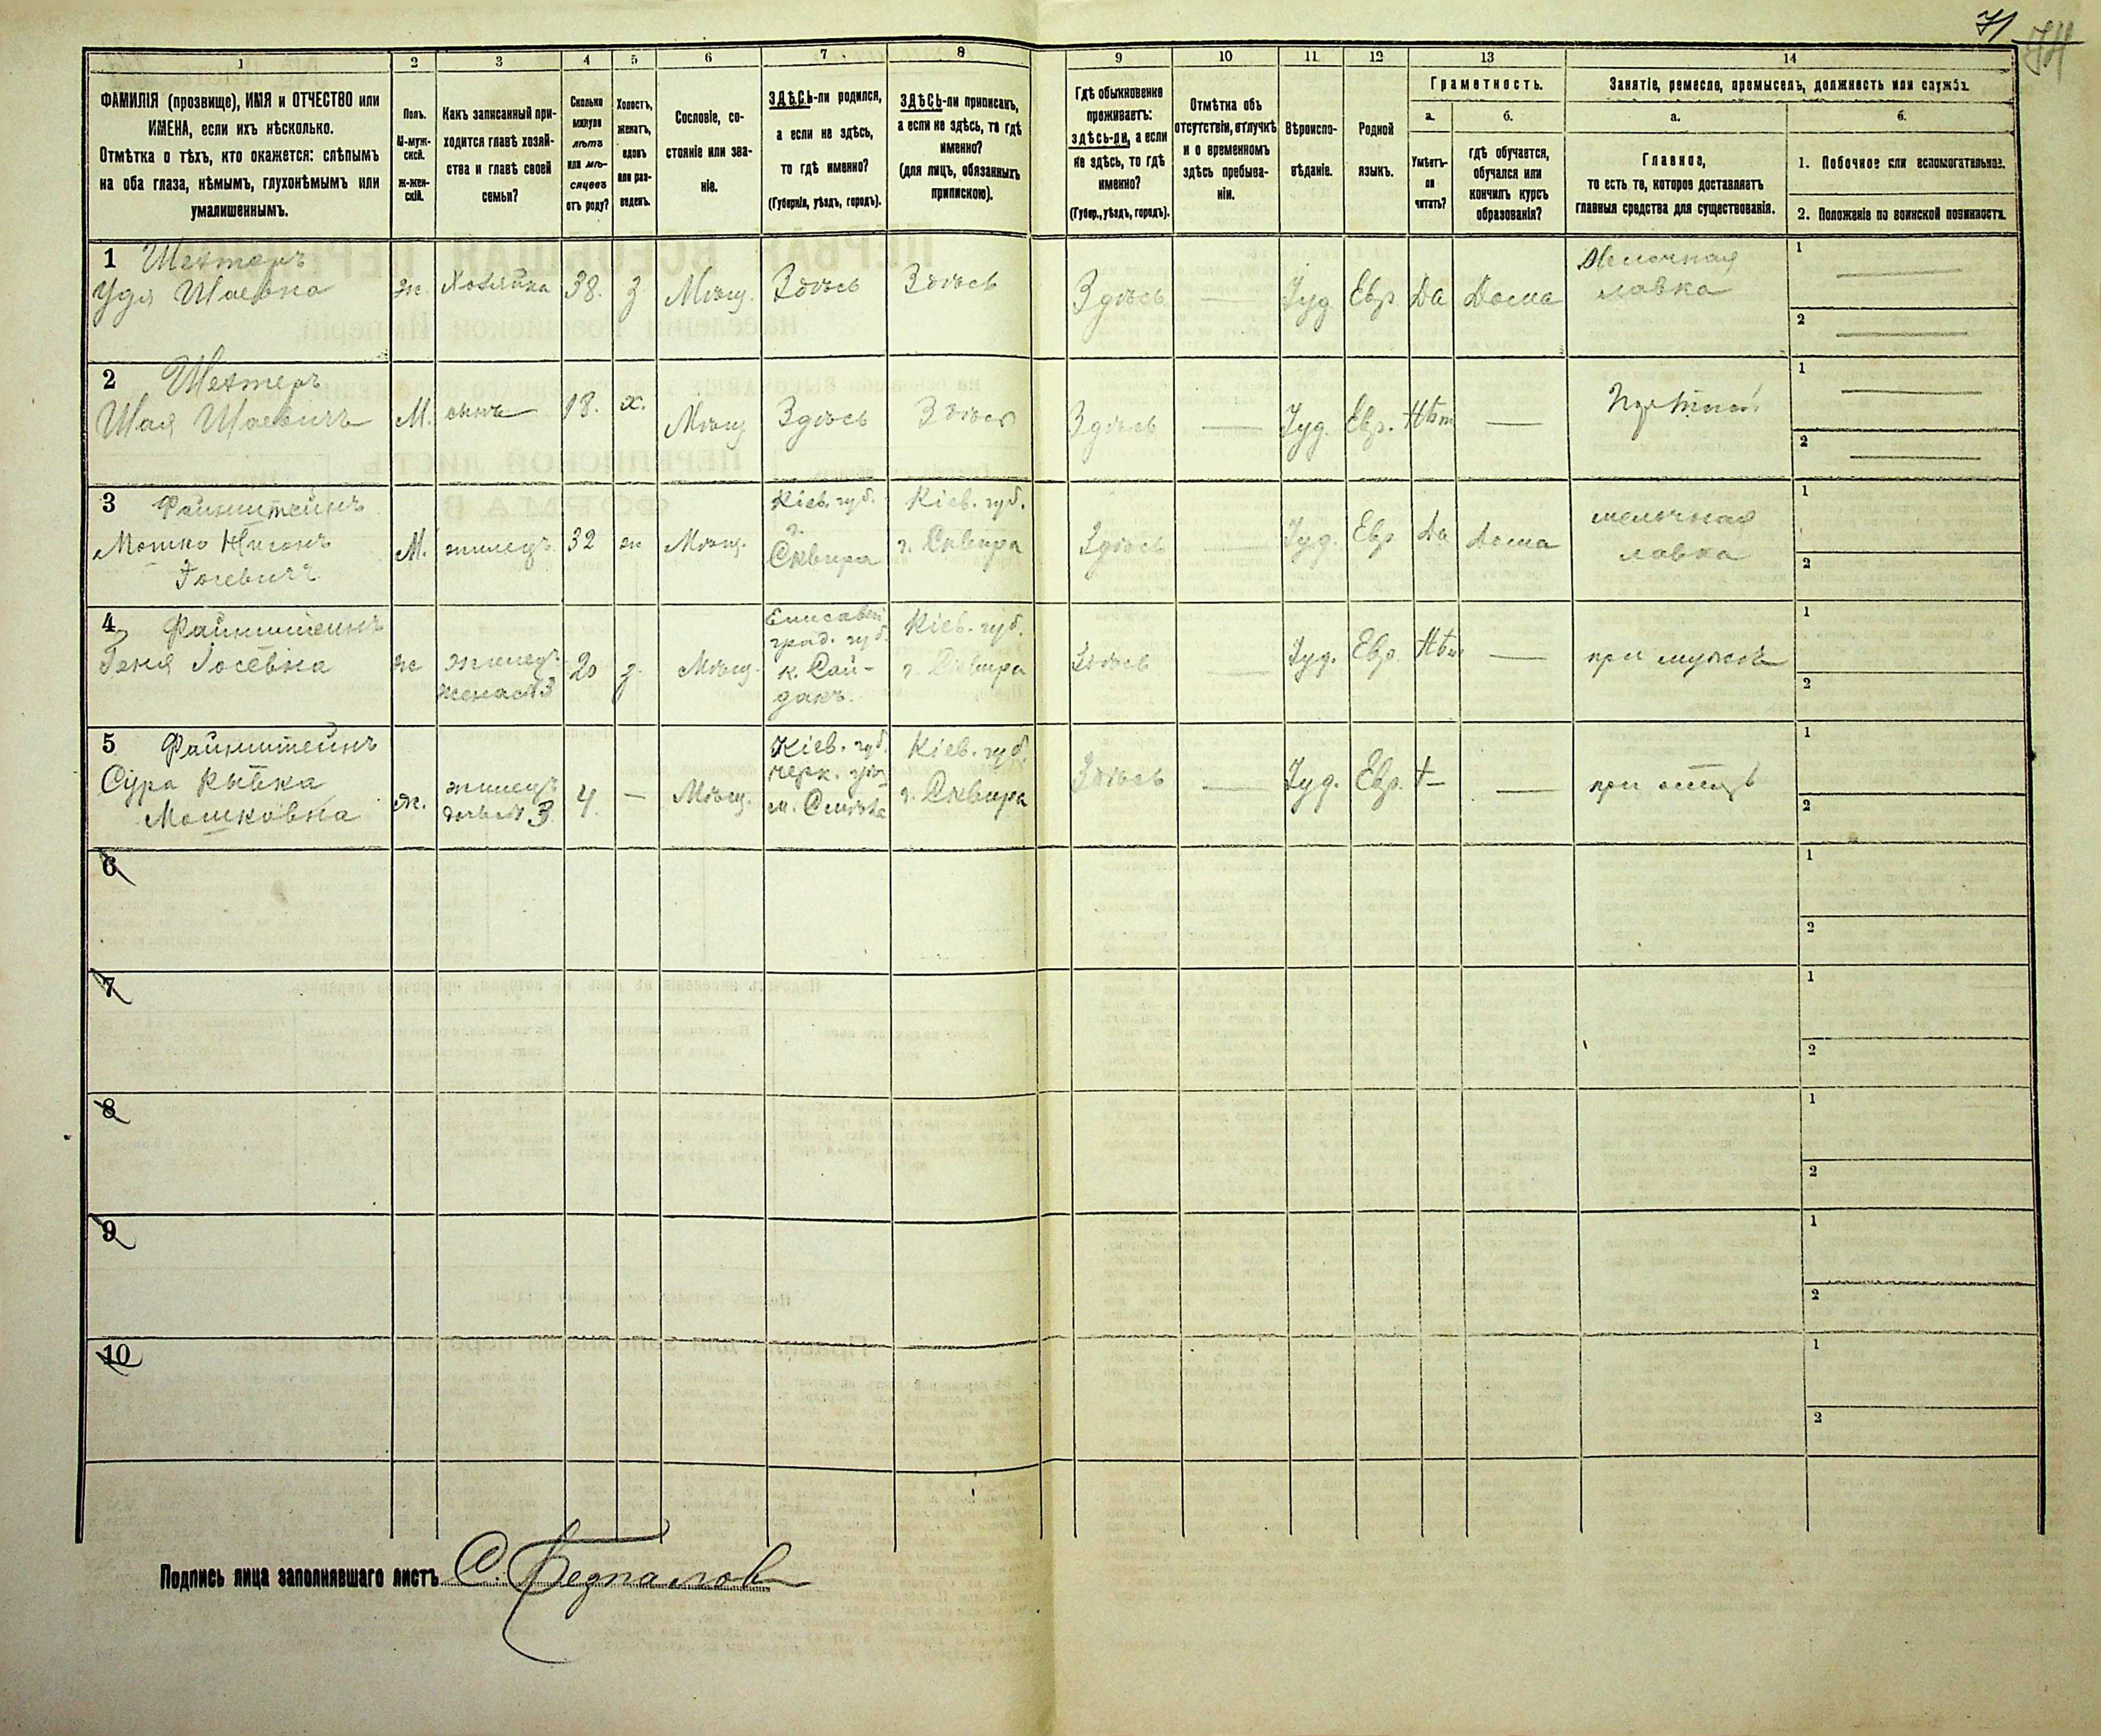 71
1
2
3
4
5
6
7
8
9
10
11
12
13
14
ФАМИЛІЯ (прозвище), ИМЯ и ОТЧЕСТВО или
ИМЕНА, если ихъ нѣсколько.
Отмѣтка о тѣхъ, кто окажется: слѣпымъ
на оба глаза, нѣмымъ, глухонѣмымъ или
умалишеннымъ.
Полъ.
М-муж-
ской.
Ж-жен-
скій.
Какъ записанный при-
ходится главѣ хозяй-
ства и главѣ своей
семьи?
Сколько
минуло
лѣтъ
или мѣ-
сяцевъ
отъ роду?
Холостъ,
женатъ,
вдовъ
или раз-
веденъ.
Сословіе, со-
стояніе или зва-
ніе.
ЗДѢСЬ-ли родился,
а если не здѣсь,
то гдѣ именно?
(Губернія, уѣздъ, городъ).
ЗДѢСЬ-ли приписанъ,
а если не здѣсь, то гдѣ
именно?
(для лицъ, обязанныхъ
припискою).
Гдѣ обыкновенно
проживаетъ:
здѣсь-ли, а если
не здѣсь, то гдѣ
именно?
(Губер., уѣздъ, городъ).
Отмѣтка объ
отсутствіи, отлучкѣ
и о временномъ
здѣсь пребыва-
ніи.
Вѣроиспо-
вѣданіе.
Родной
языкъ.
Грамотность.
а.
Умѣетъ-
ли
читать?
б.
гдѣ обучается,
обучался или
кончилъ курсъ
образованія?
Занятіе, ремесло, промыселъ, должность или служба.
а.
Главное,
то есть то, которое доставляетъ
главныя средства для существованія.
б.
1. Побочное или вспомогательное.
2. Положеніе по воинской повинности.
1 Шехтеръ
Удя Шаевна
ж.
Хозяйка
38.
з
Мѣщ.
Здѣсь
Здѣсь
Здѣсь
—
Іуд
Евр
Да
Дома
Мелочная
лавка
1 —
2 —
2 Шехтеръ
Шая Шаевичъ
М.
сынъ
18.
х.
Мѣщ
Здѣсь
Здѣсь
Здѣсь
—
Іуд.
Евр.
Нѣт
—
1 —
2 —
3 Файнштейнъ
Мошко Нисонъ
М.
жилецъ
32
ж
Мѣщ.
Кіев. губ.
г.
Сквира
Кіев. губ.
г. Сквира
Здѣсь
—
Іуд.
Евр
Да
Дома
мелочная
лавка
1
2
4 Файнштейнъ
Геня Іосевна
ж
жилец.
жена № 3
20
з.
Мѣщ.
Елисавет
град. губ.
к. Сай-
дакъ.
Кіев. губ.
г. Сквира
Здѣсь
—
Іуд.
Евр.
Нѣт
—
при мужѣ
1
2
5 Файнштейнъ
Сура Рывка
Мошковна
ж.
жилецъ
дочь № 3
4
—
Мѣщ.
Кіев. губ.
черк. уѣз
м. Смѣла
Кіев. губ.
г. Сквира
Здѣсь
—
Іуд.
Евр.
—
при отцѣ
1
2
6
1
2
7
1
2
8
1
2
9
1
2
10
1
2
Подпись лица заполнявшаго листъ